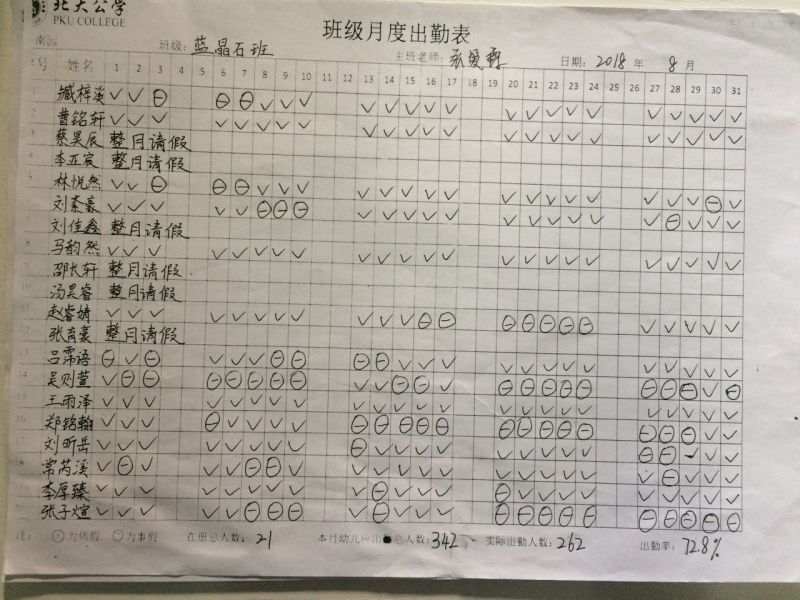 北大公学
PKU COLLEGE
班级月度出勤表
班级: 蓝晶石班 主班老师: 日期: 2018 年 8 月
号 姓名 1 2 3 4 5 6 7 8 9 10 11 12 13 14 15 16 17 18 19 20 21 22 23 24 25 26 27 28 29 30 31
1 臧梓溪 ✓ ✓ ⊖ ⊖ ⊖ ✓ ✓ ✓ ✓ ✓ ✓ ✓ ✓ ✓ ✓ ✓ ✓ ✓ ✓ ✓ ✓ ✓ ✓
2 曹铭轩 ✓ ✓ ✓ ✓ ✓ ✓ ✓ ✓ ✓ ✓ ✓ ✓ ✓ ✓ ✓ ✓ ✓ ✓ ✓ ✓ ✓ ✓ ✓
3 蔡昊辰 整月请假
4 李亚宸 整月请假
5 林悦然 ✓ ✓ ⊖ ⊖ ⊖ ✓ ✓ ✓ ✓ ✓ ✓ ✓ ✓ ✓ ✓ ✓ ✓ ✓ ✓ ✓ ✓ ⊖ ✓
刘素豪 ✓ ✓ ✓ ✓ ✓ ⊖ ⊖ ⊖ ✓ ✓ ✓ ✓ ✓ ✓ ✓ ✓ ✓ ✓ ✓ ⊖ ✓ ✓ ✓
刘佳鑫 整月请假
8 马韵然 ✓ ✓ ✓ ✓ ✓ ✓ ✓ ✓ ✓ ✓ ✓ ✓ ✓ ✓ ✓ ✓ ✓ ✓ ✓ ✓ ✓ ✓ ✓
邵长轩 整月请假
汤昊睿 整月请假
赵睿婧 ✓ ✓ ✓ ✓ ✓ ✓ ✓ ✓ ✓ ✓ ✓ ⊖ ⊖ ⊖ ⊖ ⊖ ⊖ ⊖ ✓ ✓ ✓ ✓ ✓
12 张育豪 整月请假
13 吕霈语 ⊖ ✓ ⊖ ✓ ✓ ✓ ⊖ ⊖ ⊖ ⊖ ✓ ✓ ✓ ✓ ✓ ✓ ✓ ✓ ✓ ✓ ✓ ✓ ✓
14 吴则萱 ✓ ⊖ ⊖ ⊖ ⊖ ⊖ ⊖ ⊖ ✓ ✓ ⊖ ⊖ ✓ ⊖ ⊖ ⊖ ⊖ ⊖ ⊖ ⊖ ⊖ ✓ ⊖
15 王雨泽 ✓ ✓ ✓ ✓ ✓ ✓ ✓ ✓ ✓ ✓ ✓ ✓ ✓ ✓ ✓ ✓ ✓ ✓ ✓ ✓ ✓ ✓ ✓
16 郑铭翰 ✓ ✓ ✓ ⊖ ✓ ✓ ✓ ✓ ⊖ ⊖ ⊖ ⊖ ⊖ ⊖ ⊖ ⊖ ⊖ ⊖ ⊖ ⊖ ⊖ ✓ ✓
17 刘昕岳 ✓ ✓ ✓ ✓ ✓ ✓ ✓ ✓ ⊖ ✓ ✓ ✓ ✓ ✓ ✓ ✓ ✓ ✓ ⊖ ⊖ ✓ ✓ ✓
18 常芮溪 ✓ ⊖ ✓ ✓ ✓ ⊖ ⊖ ✓ ✓ ✓ ✓ ✓ ✓ ✓ ✓ ✓ ✓ ✓ ✓ ⊖ ✓ ✓ ✓
李厚臻 ✓ ✓ ✓ ✓ ✓ ✓ ✓ ✓ ✓ ⊖ ✓ ✓ ✓ ⊖ ✓ ✓ ✓ ✓ ✓ ✓ ✓ ✓ ✓
张子煊 ✓ ✓ ✓ ✓ ✓ ⊖ ⊖ ⊖ ✓ ⊖ ✓ ✓ ✓ ⊖ ⊖ ⊖ ⊖ ⊖ ⊖ ⊖ ⊖ ⊖ ⊖
注: 为病假 ⊖为事假 在册总人数: 21 本月幼儿应出总人数: 342 实际出勤人数: 262 出勤率: 72.8%